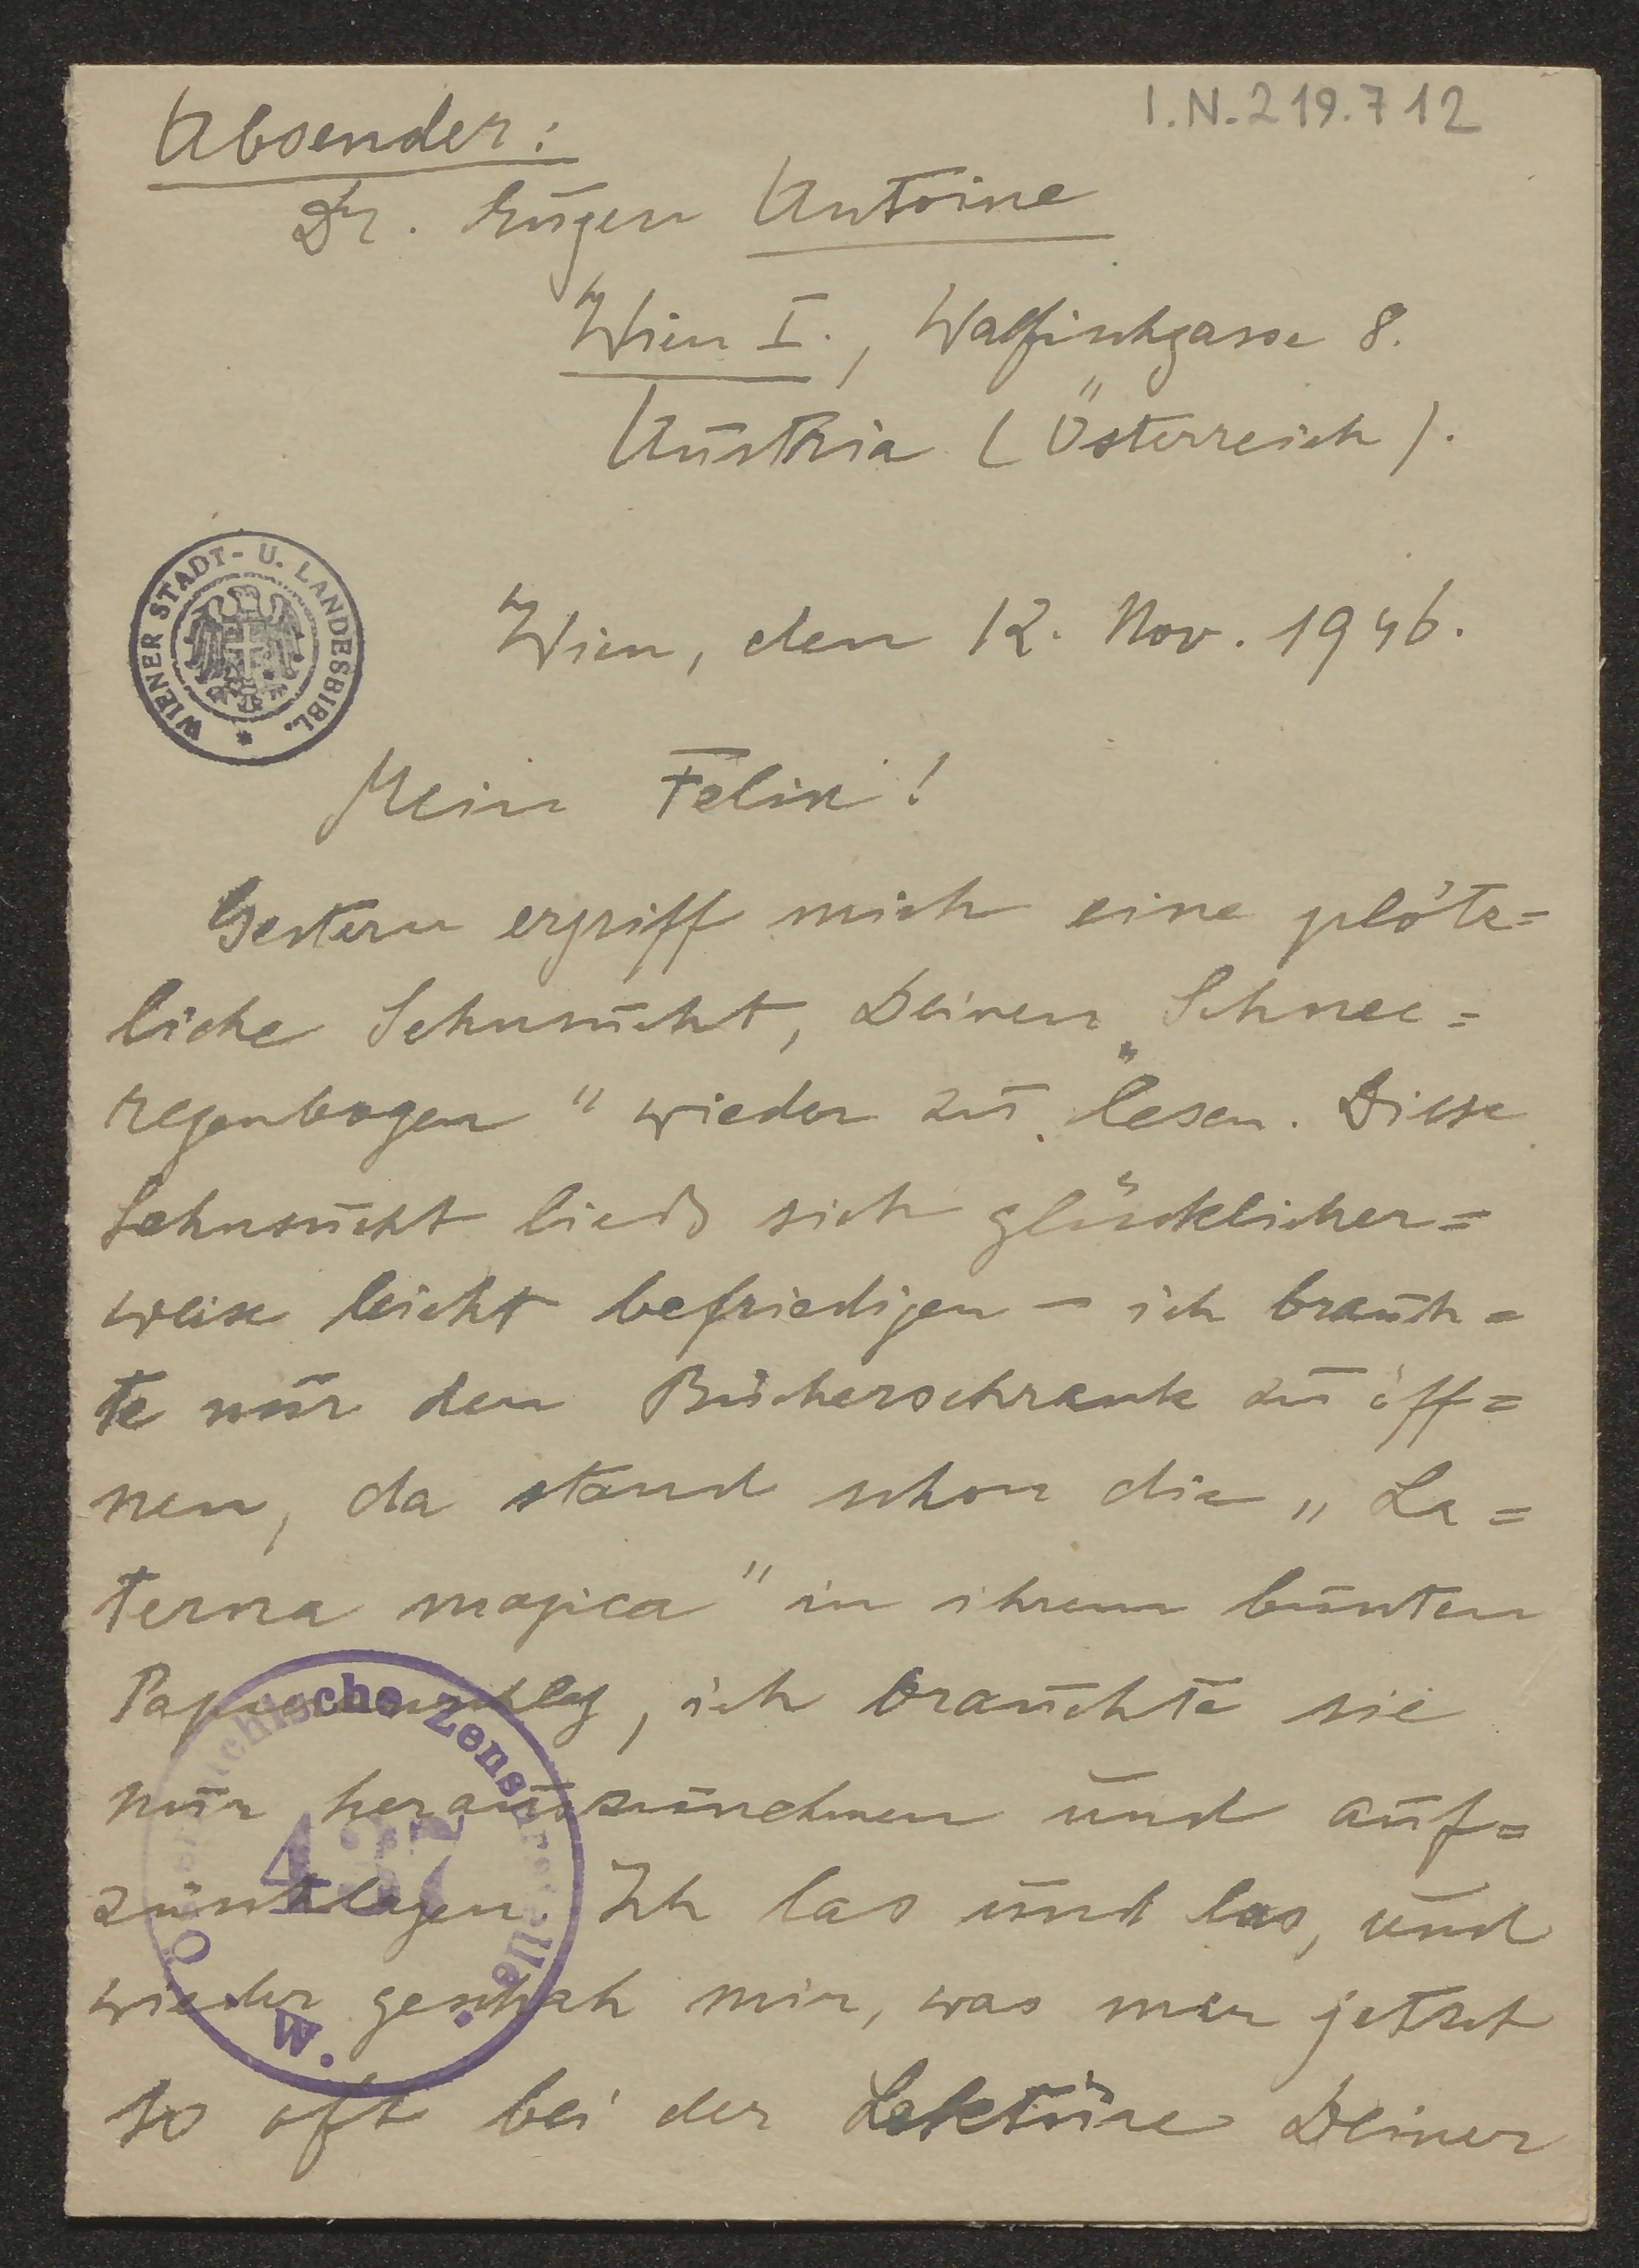 I.N. 219.712
Absender:
Dr. Eugen Antoine
Wien I., Walfischgasse 8.
Austria (Österreich).
WIENER STADT- U. LANDESBIBL.
Wien, den 12. Nov. 1946.
Mein Felix!
Gestern ergriff mich eine plötz=
liche Sehnsucht, Deinen „Schnee=
regenbogen" wieder zu lesen. Diese
Sehnsucht ließ sich glücklicher=
weise leicht befriedigen – ich brauch=
te nur den Bücherschrank zu öff=
nen, da stand schon die „La=
terna magica" in ihrem bunten
Papierumschlag, ich brauchte sie
nur herauszunehmen und auf=
zuschlagen. Ich las und las, und
wieder geschah mir, was mir jetzt
so oft bei der Lektüre Deiner
Österreichische Zensurstelle
W.